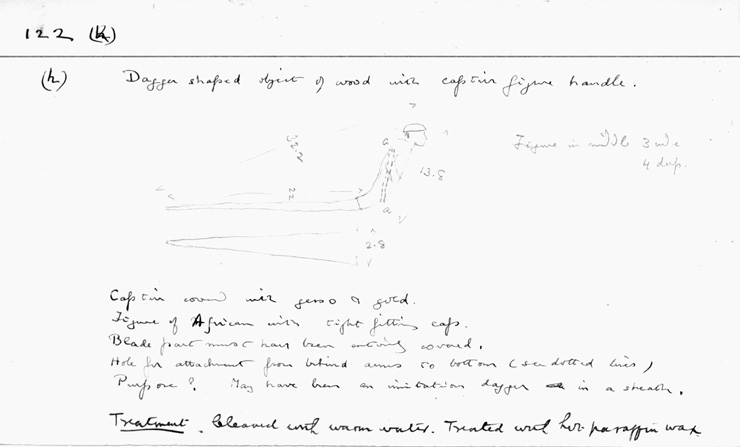 122 (h)
(h) Dagger shaped object of wood with captive figure handle.
32.2
a
Figure in middle 3 wide
4 deep.
13.8
22
a
2.8
Captive covered with gesso & gold.
Figure of African with tight fitting cap.
Blade part must have been entirely covered.
Hole for attachment from behind arms to bottom (see dotted lines)
Purpose? May have been an imitation dagger in a sheath.
Treatment. Cleaned with warm water. Treated with hot paraffin wax